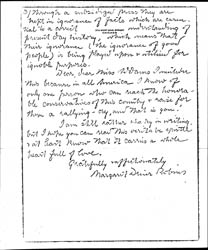 3) through a subsidized press they are
kept in ignorance of facts which are essen-
tial to a correct understanding of
present day history, which means that
their ignorance (the ignorance of good
people) is being played upon & utilized for
ignoble purposes.
Dear, dear Miss
this because in all America I know of
only one person who can reach the honora-
ble conservatives of this country & raise for
them a rallying-cry, and that is you.
I am still rather shaky in writing,
but I hope you can read this
at least know that it carries a whole
heart full of love.
Gratefully & affectionately
Margaret Dreier Robins